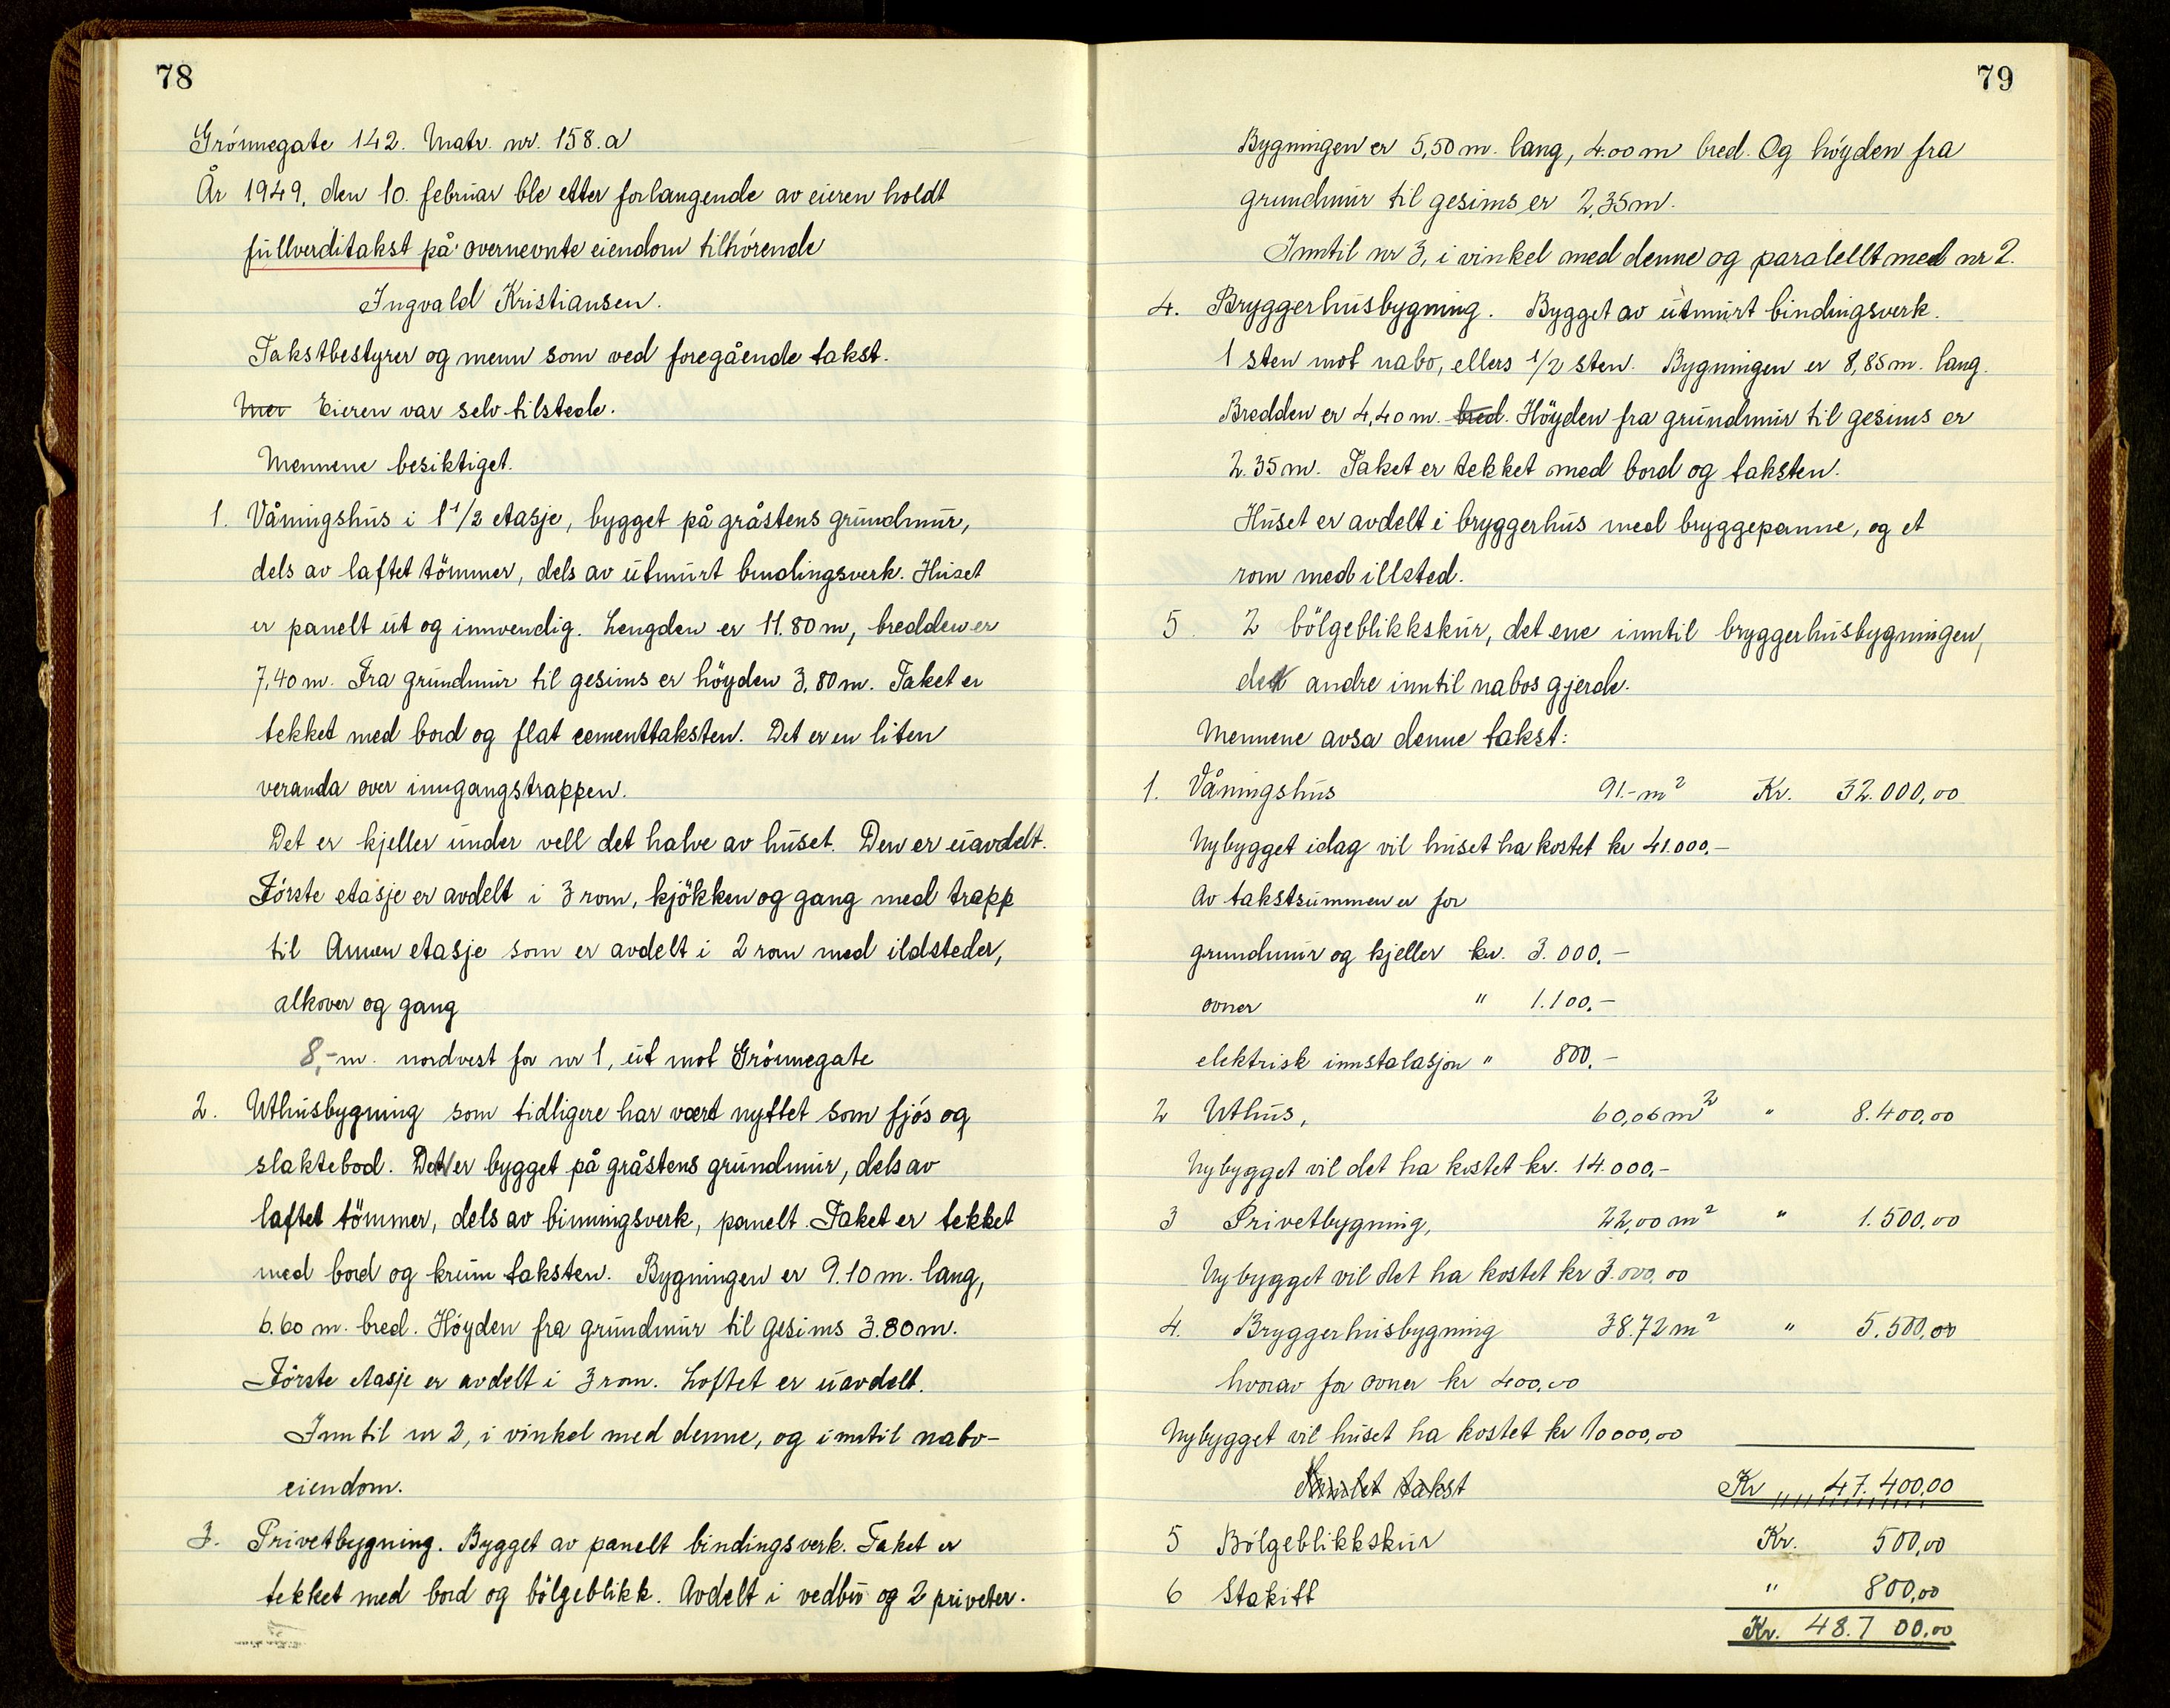 78
Grönnegate 142. Matr. nr. 158.a
År 1949, den 10. februar ble etter forlangende av eieren holdt
fullverditakst på overnevnte eiendom tilhörende
Ingvald Kristiansen.
Takstbestyrer og menn som ved foregående takst.
Mer Eieren var selv tilstede.
Mennene besiktiget.
1. Våningshus i 1 1/2 etasje, bygget på gråstens grundmur,
dels av laftet tömmer, dels av utmurt bindingsverk. Huset
er panelt ut og innvendig. Lengden er 11.80 m, bredden er
7,40 m. Fra grundmur til gesims er höyden 3,80 m. Taket er
tekket med bord og flat cementtaksten. Det er en liten
veranda over inngangstrappen.
Det er kjeller under vell det halve av huset. Den er uavdelt.
Förste etasje er avdelt i 3 rom, kjökken og gang med trapp
til Annen etasje som er avdelt i 2 rom med ildsteder,
alkover og gang
8,- m. nordvest for nr 1, ut mot Grönnegate
2. Uthusbygning som tidligere har vært nyttet som fjös og
slaktebod. Det er bygget på gråstens grundmur, dels av
laftet tömmer, dels av binningsverk, panelt. Taket er tekket
med bord og krum taksten. Bygningen er 9.10 m. lang,
6.60 m. bred. Höyden fra grundmur til gesims 3.80 m.
Förste etasje er avdelt i 3 rom. Loftet er uavdelt.
Inntil nr 2, i vinkel med denne, og inntil nabo-
eiendom.
3. Privetbygning. Bygget av panelt bindingsverk. Taket er
tekket med bord og bölgeblikk. Avdelt i vedbu og 2 priveter.
79
Bygningen er 5,50 m. lang, 4.00 m bred. Og höyden fra
grundmur til gesims er 2,35 m.
Inntil nr 3, i vinkel med denne og paralellt med nr 2.
4. Bryggerhusbygning. Bygget av utmurt bindingsverk.
1 sten mot nabo, ellers 1/2 sten. Bygningen er 8,85 m. lang.
Bredden er 4,40 m. bred. Höyden fra grundmur til gesims er
2.35 m. Taket er tekket med bord og taksten.
Huset er avdelt i bryggerhus med bryggepanne, og et
rom med illsted.
5. 2 bölgeblikkskur, det ene inntil bryggerhusbygningen,
det andre inntil nabos gjerde.
Mennene avsa denne takst:
1. Våningshus 91.- m² Kr. 32.000,00
Nybygget idag vil huset ha kostet kr 41.000,-
Av takstsummen er for
grundmur og kjeller kr. 3.000.-
ovner " 1.100.-
elektrisk innstalasjon " 800.-
2 Uthus, 60,06 m² " 8.400,00
Nybygget vil det ha kostet kr. 14.000,-
3 Privetbygning, 22,00 m² " 1.500,00
Nybygget vil det ha kostet kr 3.000,00
4. Bryggerhusbygning 38.72 m² " 5.500,00
hvorav for ovner kr 400,00
Nybygget vil huset ha kostet kr 10000,00
Samlet takst Kr 47.400,00
5 Bölgeblikkskur Kr. 500,00
6 Stakitt " 800,00
Kr. 48.700,00